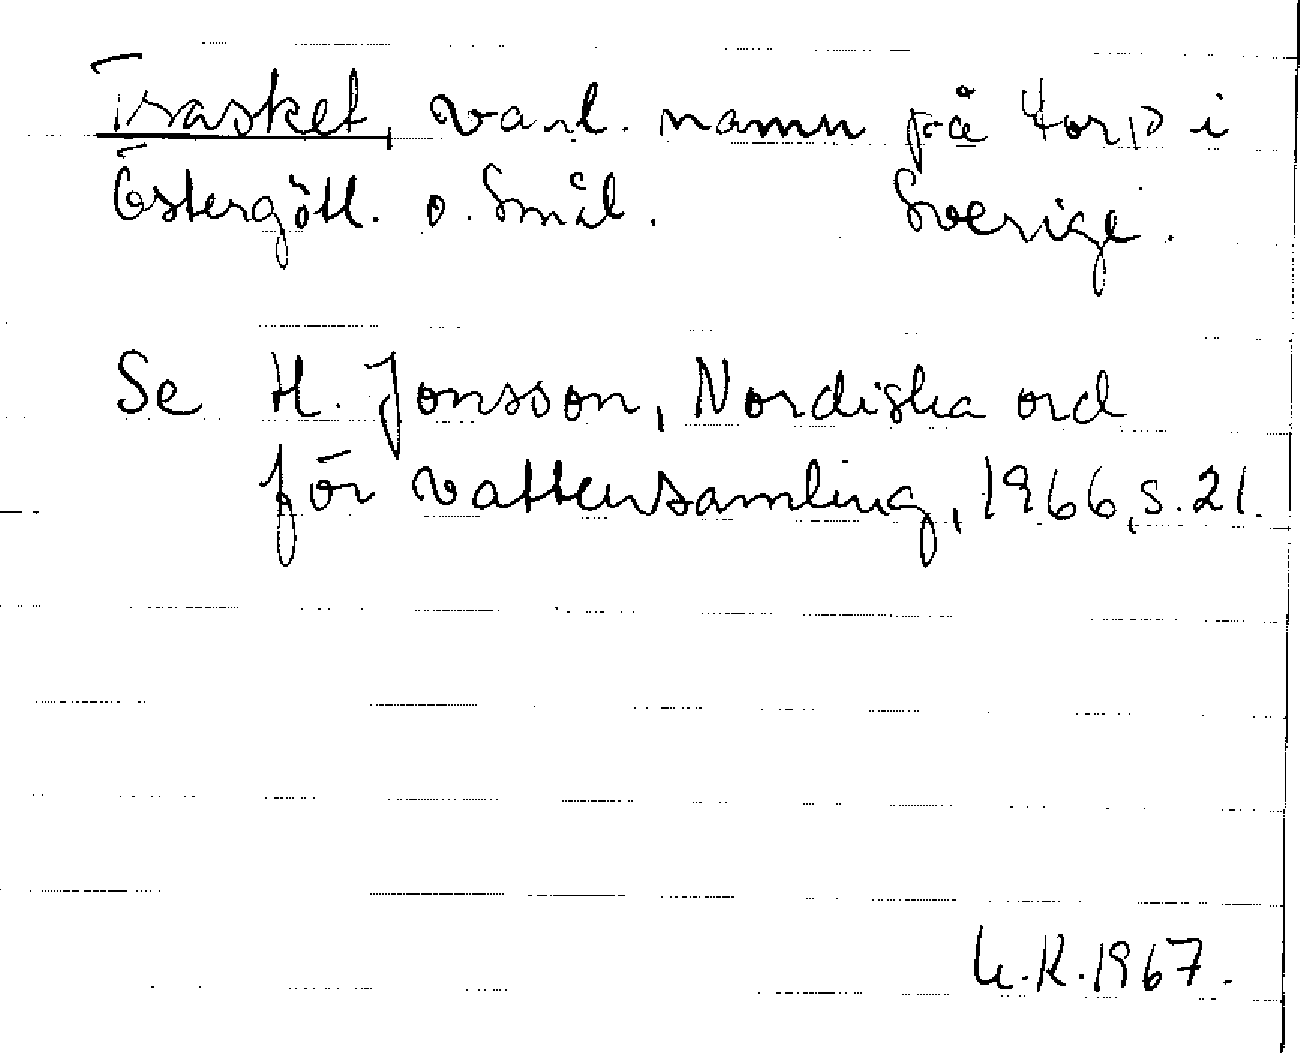 Trasket, vanl. namn på torp i
Östergötl. o. Smål. Sverige.
Se H. Jonsson, Nordiska ord
för vattensamling, 1966, s. 21.
L.K. 1967.